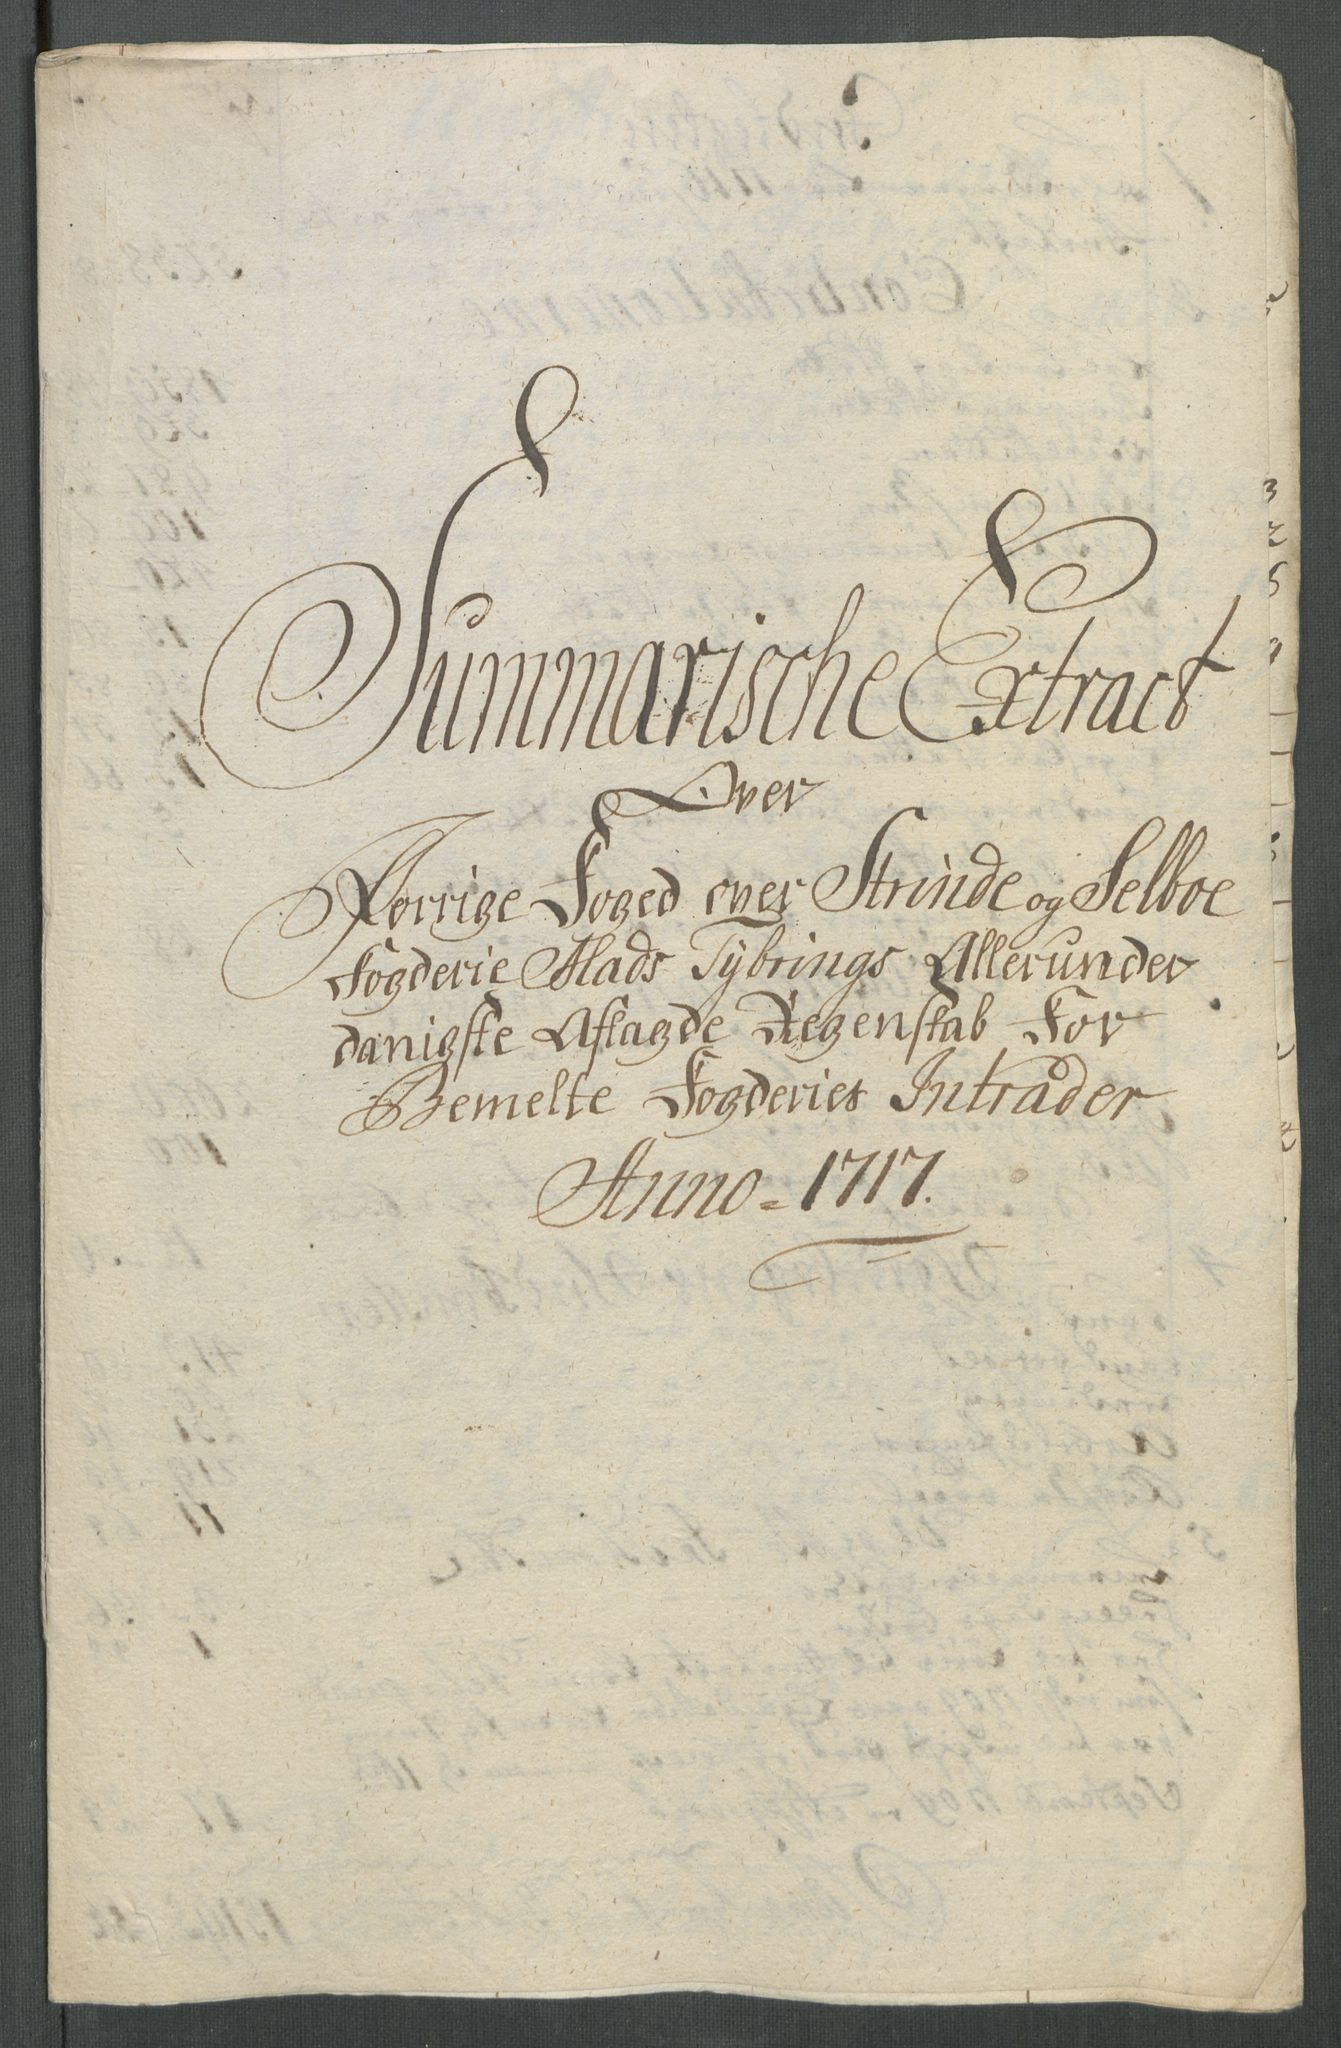 Summarische Extract
Over
Forrige Foged over Strinde og Selboe
Fogderie Mads Tybrings Allerunder
danigste Aflagde Regenskab For
Bemelte Fogderies Intrader
Anno = 1717.